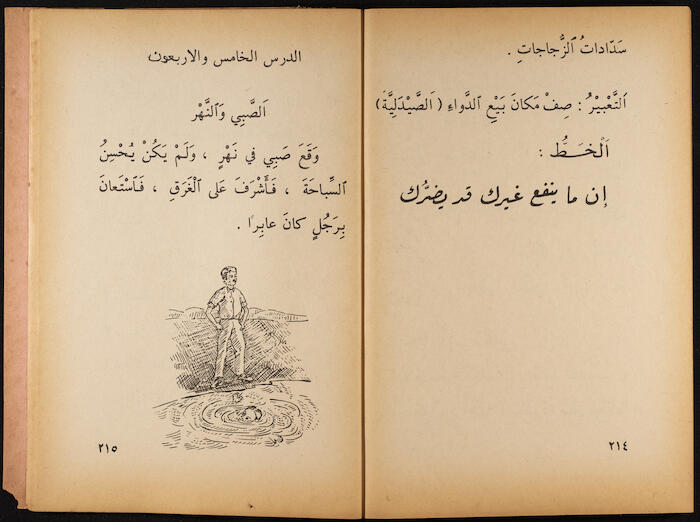 سَدّاداتُ ٱلزُّجاجاتِ .
اَلتَّعْبيْرُ : صِفْ مَكانَ بَيْعِ ٱلدَّواءِ ( اَلصَّيْدَلِيَّة )
اَلْخَـطُّ :
إن ما ينفع غيرك قد يضرُّك
٢١٤
الدرس الخامس والاربعون
اَلصَّبِي وَٱلنَّهْر
وَقَعَ صَبِي في نَهْرٍ ، وَلَمْ يَكُنْ يُحْسِنُ
ٱلسِّباحَةَ ، فَأَشْرَفَ عَلى ٱلْغَرَقِ ، فَٱسْتَعانَ
بِرَجُلٍ كانَ عابِرًا .
٢١٥